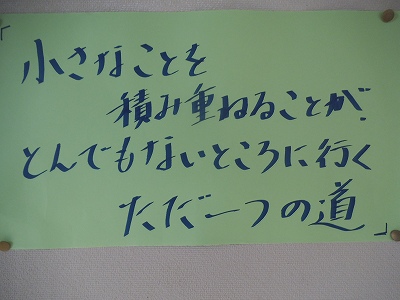 「小さなことを
積み重ねることが、
とんでもないところに行く
ただ一つの道」